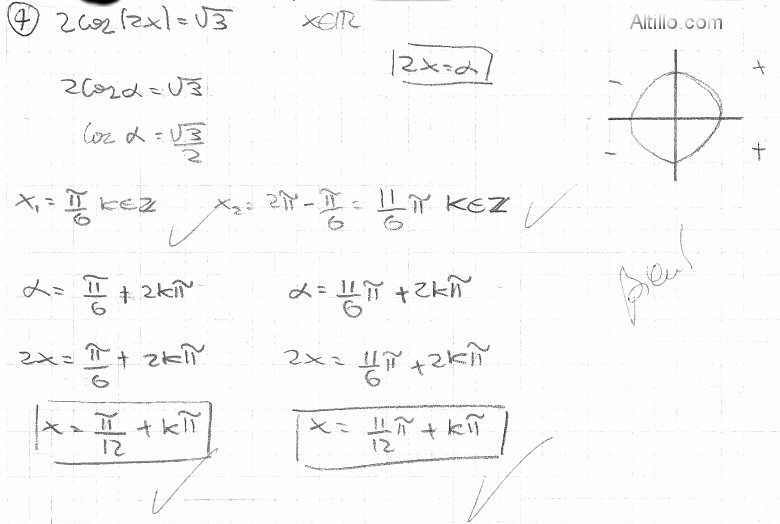 ④ 2cos(2x)=√3 x∈ℝ Altillo.com
|2x=α|
2cosα=√3
cos α=√3/2
+
-
-
+
x₁=π/6 k∈ℤ x₂=2π-π/6=11/6π k∈ℤ
α=π/6+2kπ α=11/6π+2kπ
Bien!
2x=π/6+2kπ 2x=11/6π+2kπ
x=π/12+kπ x=11/12π+kπ